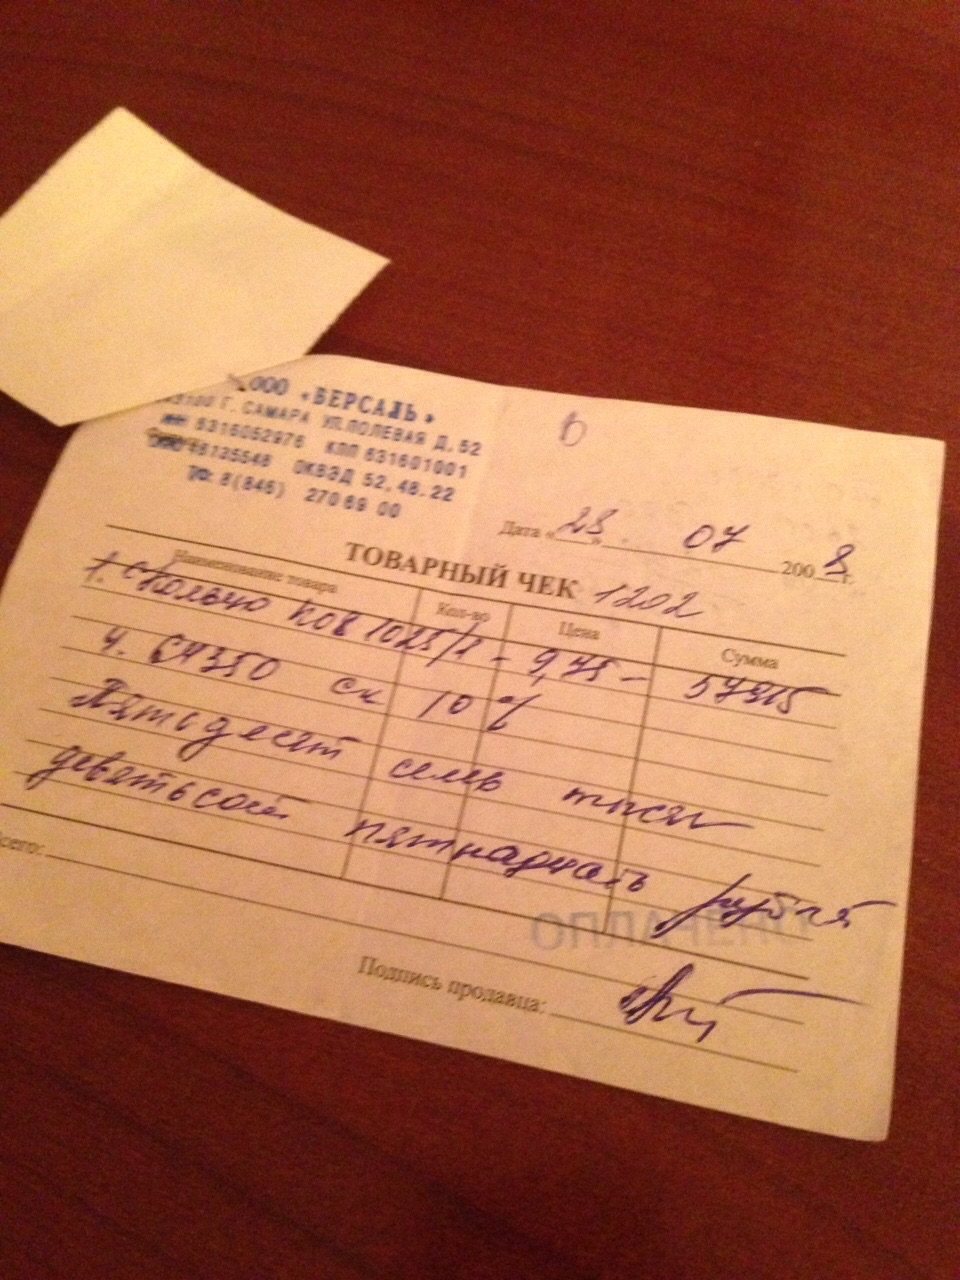 ООО «ВЕРСАЛЬ»
Г. САМАРА УЛ.ПОЛЕВАЯ Д. 52
ИНН 6316052976 КПП 631601001
ОКВЭД 52.48.22
ТФ: 8(846) 270 69 00
Дата «23» 07 2008 г.
ТОВАРНЫЙ ЧЕК 1202
Наименование товара Кол-во Цена Сумма
1. Кольцо К08 1025/1 - 9,75 - 57915
ск 10 %
Пятьдесят семь тысяч
девятьсот пятнадцать рублей
Всего:
ОПЛАЧЕНО
Подпись продавца: